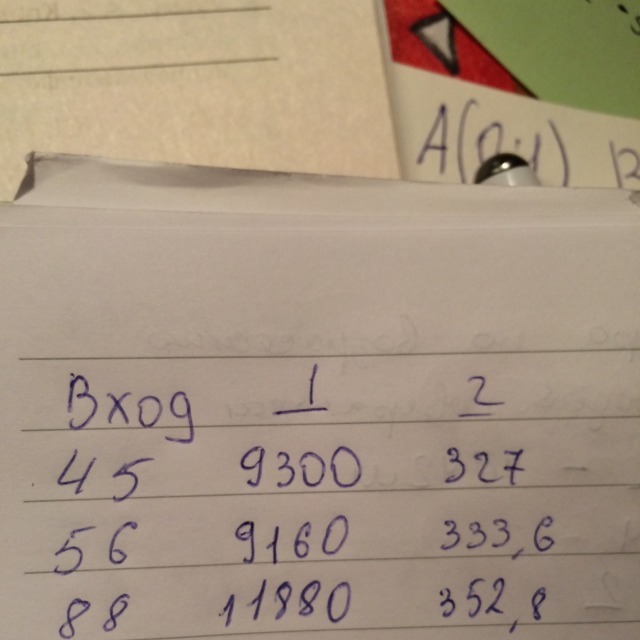 Вход 1 2
45 9300 327
56 9160 333,6
88 11880 352,8